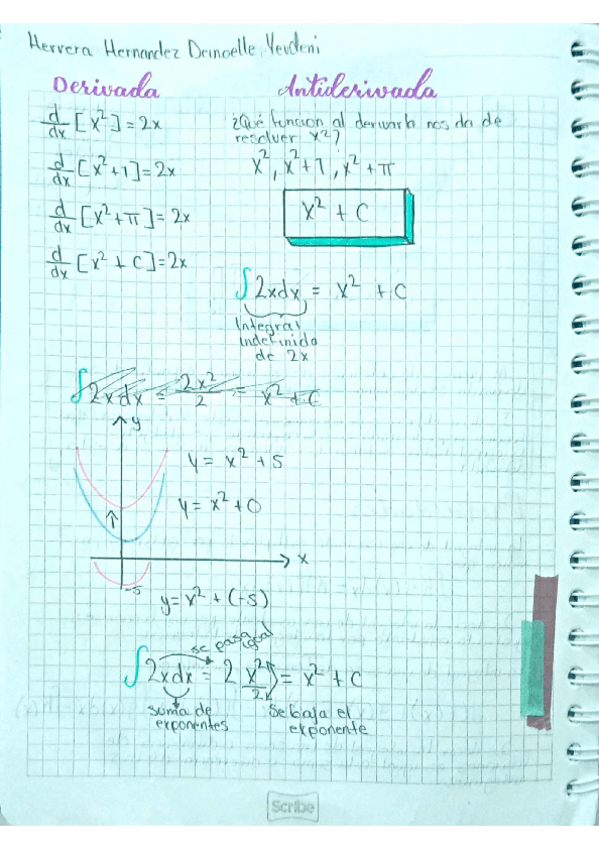 Herrera Hernandez Deinoelle Yevdeni
Derivada
d/dx [x²] = 2x
d/dx [x²+1] = 2x
d/dx [x²+π] = 2x
d/dx [x² + C] = 2x
Antiderivada
¿Qué funcion al derivarla nos da de
resolver x²?
x², x²+1, x²+π
x² + C
∫2xdx = x² + C
Integral
indefinida
de 2x
∫2xdx = 2x²/2 = x² + C
y
y = x² + 5
y = x² + 0
x
-5
y = x² + (-5)
se pasa igual
∫2xdx = 2 x²/2 = x² + C
suma de
exponentes
Se baja el
exponente
Scribe